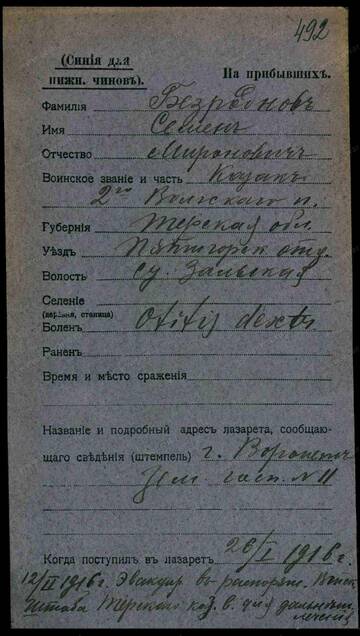 492
(Синія для
нижн. чиновъ).
На прибывшихъ.
Фамилія Безродновъ
Имя Семенъ
Отчество Мироновичъ
Воинское званіе и часть Казакъ
2го Волжскаго п.
Губернія Терская обл.
Уѣздъ Пятигорск отд.
Волость ст. Зольская
Селеніе
(деревня, станица)
Боленъ Otitis dextr.
Раненъ
Время и мѣсто сраженія
Названіе и подробный адресъ лазарета, сообщаю-
щаго свѣдѣнія (штемпель) г. Воронежъ
Зем госп. N 11
Когда поступилъ въ лазаретъ 26/I 1916 г.
12/II 1916 г. Эвакуир въ распоряж. Войск
Штаба Терскаго каз. в. для дальнѣйш
леченія